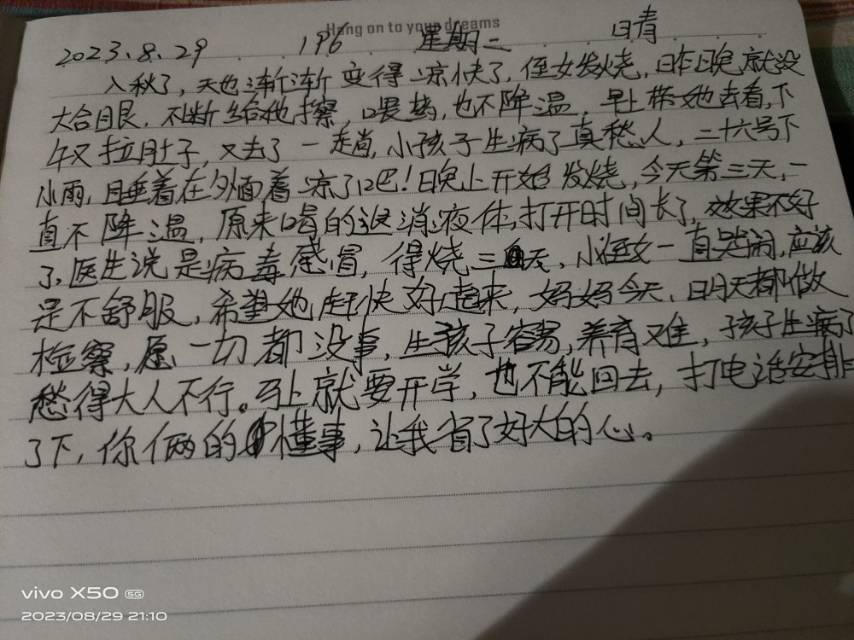 Hang on to your dreams
2023.8.29 196 星期二 晴
入秋了，天也渐渐变得凉快了，侄女发烧，昨晚就没
大合眼，不断给他擦，喂热，也不降温，早上带她去看，下
午又拉肚子，又去了一趟，小孩子生病了真愁人，二十六号下
小雨，睡着在外面着凉了吧！晚上开始发烧，今天第三天，一
直不降温，原来喝的这消液体，打开时间长了，效果不好
了，医生说是病毒感冒，得烧三天，小侄女一直哭闹，应该
是不舒服，希望她赶快好起来，妈妈今天、明天都做
检察，愿一切都没事，生孩子容易，养育难，孩子生病了
愁得大人不行。马上就要开学，也不能回去，打电话安排
了下，你俩的懂事，让我省了好大的心。
vivo X50 5G
2023/08/29 21:10